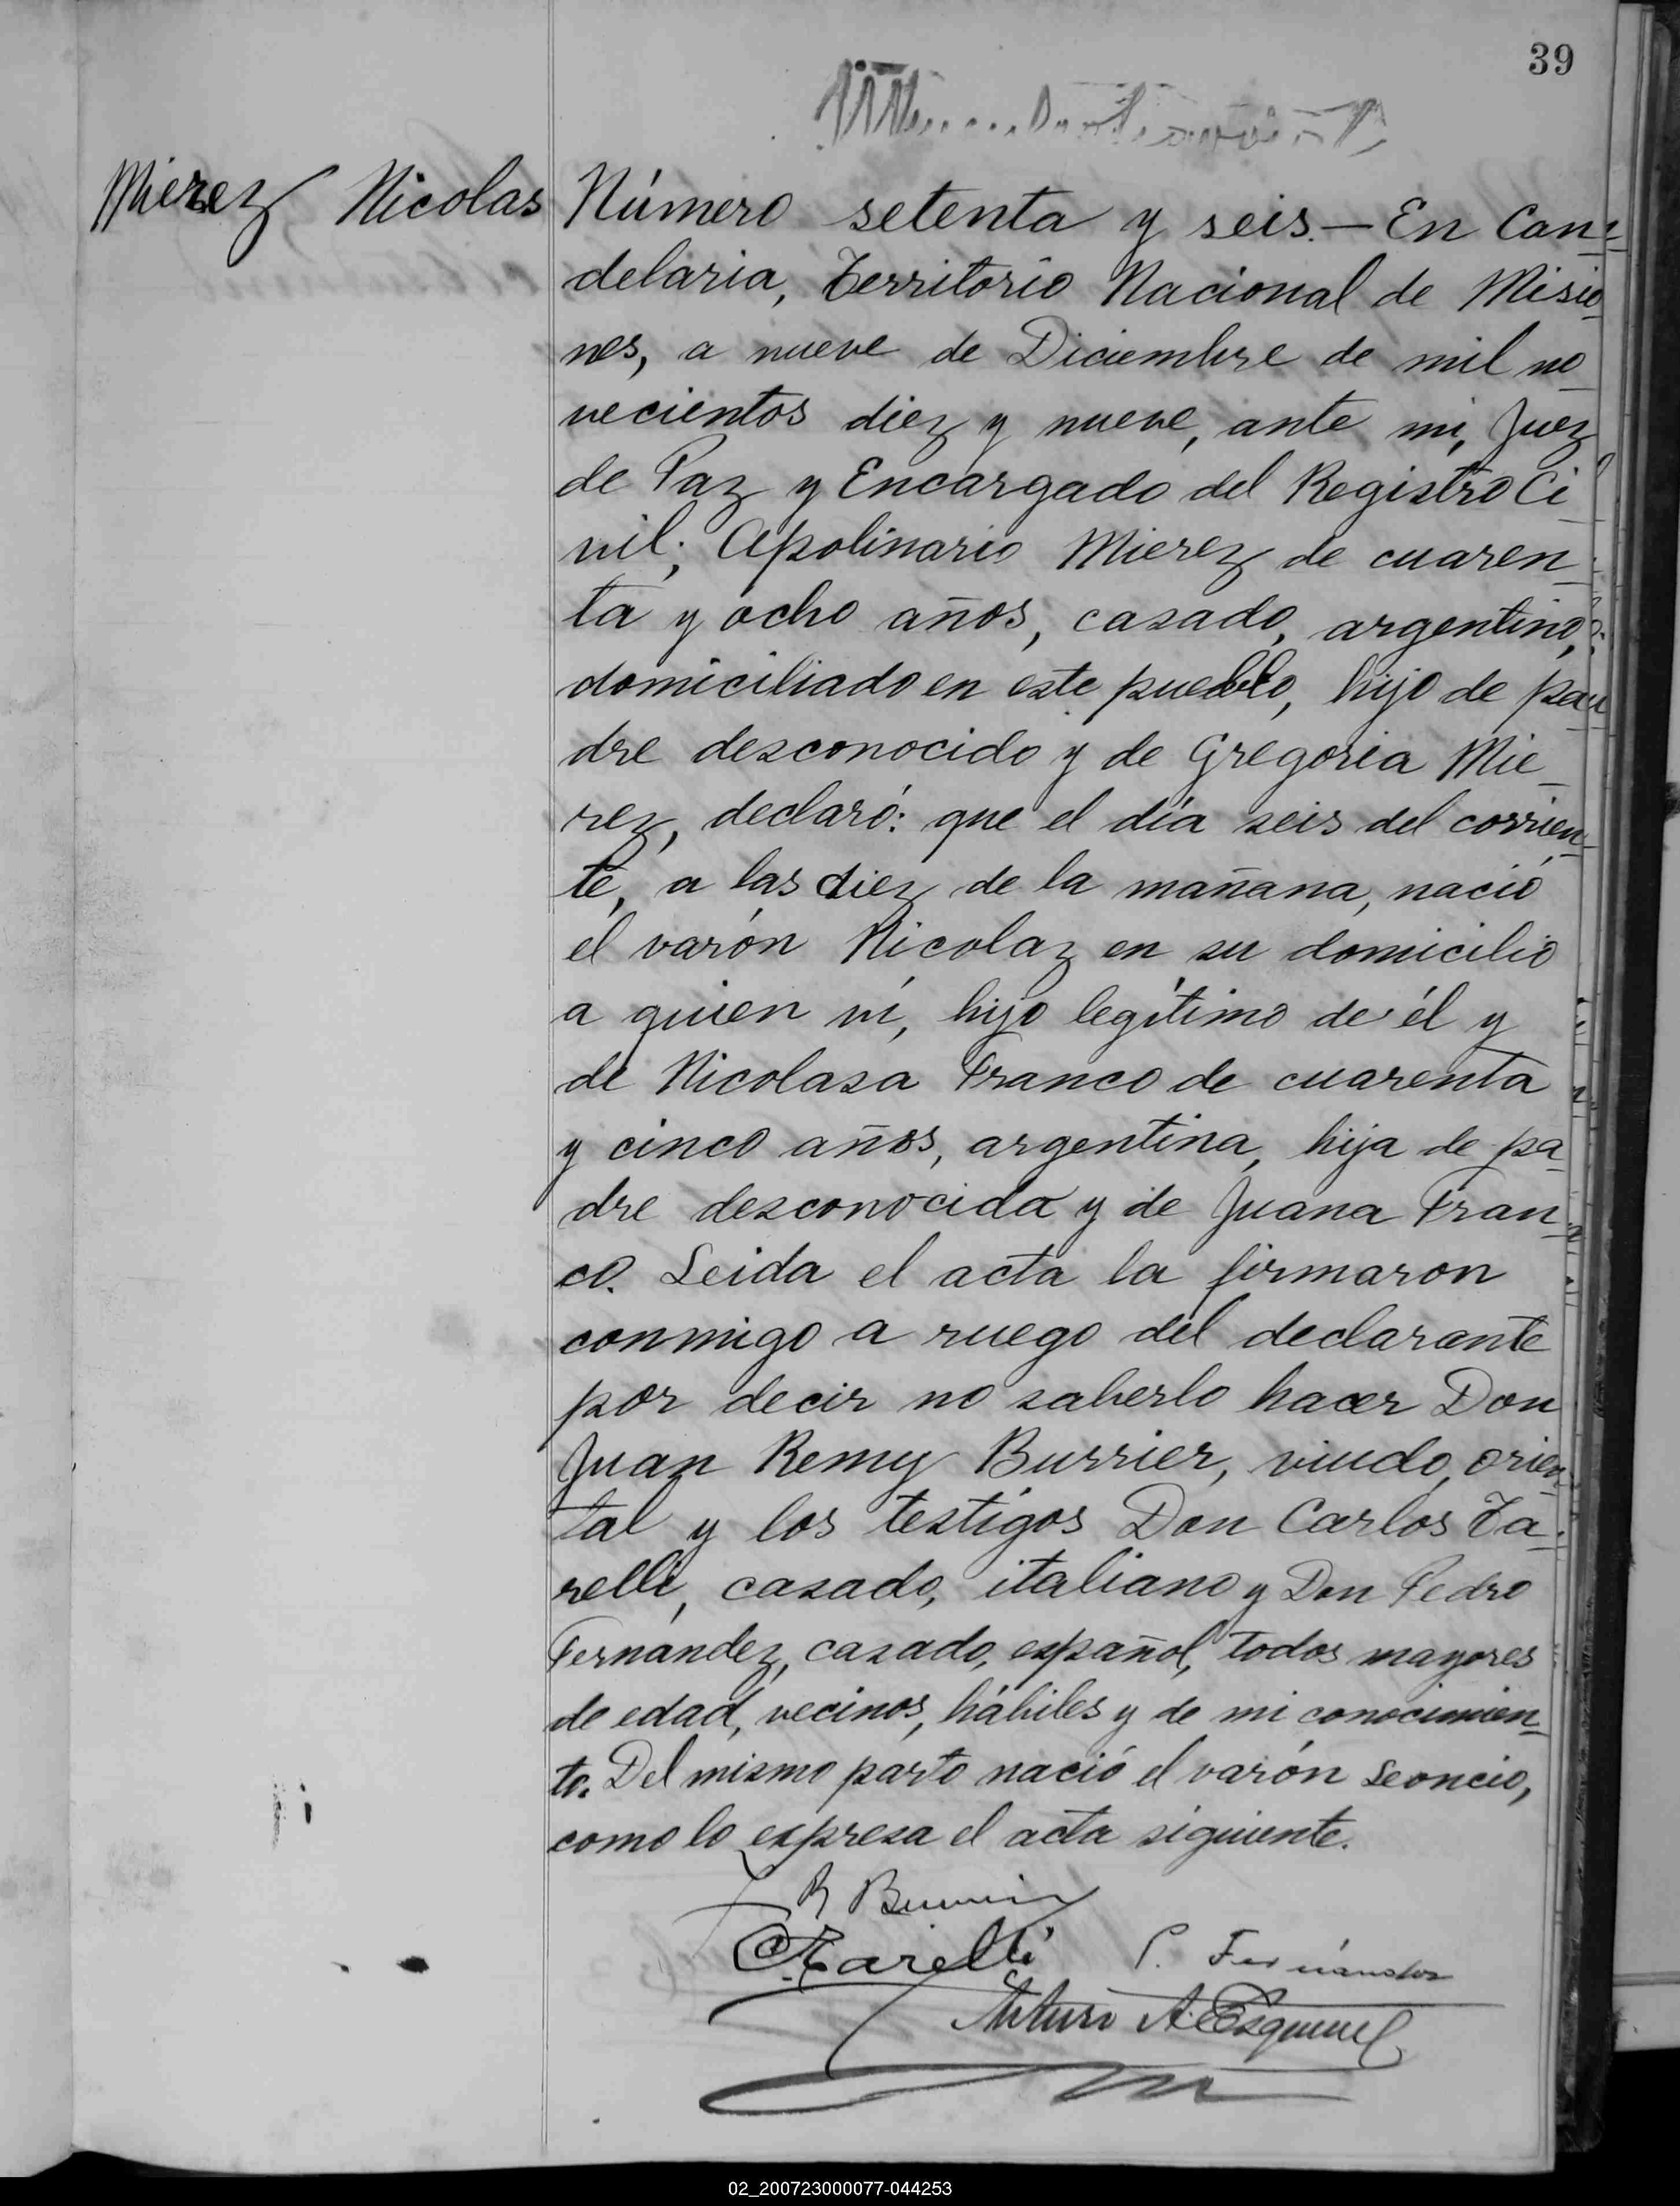 39
Mierez Nicolas
Número setenta y seis.— En Can-
delaria, Territorio Nacional de Misio-
nes, a nueve de Diciembre de mil no-
vecientos diez y nueve, ante mi, Juez
de Paz y Encargado del Registro Ci-
vil; Apolinario Mierez de cuaren-
ta y ocho años, casado, argentino,
domiciliado en este pueblo, hijo de pa-
dre desconocido y de Gregoria Mie-
rez, declaró: que el día seis del corrien-
te, a las diez de la mañana, nació
el varón Nicolaz en su domicilio
a quien vi, hijo legítimo de él y
de Nicolasa Franco de cuarenta
y cinco años, argentina, hija de pa-
dre desconocida y de Juana Fran-
co. Leida el acta la firmaron
conmigo a ruego del declarante
por decir no saberlo hacer Don
Juan Remy Burrier, viudo, orien-
tal y los testigos Don Carlos Ta-
relli, casado, italiano y Don Pedro
Fernandez, casado, español, todos mayores
de edad, vecinos, hábiles y de mi conocimien-
to. Del mismo parto nació el varón Leoncio,
como lo expresa el acta siguiente.
R Burrier
C Tarelli P. Fernández
Arturo A. Esquivel
02_200723000077-044253